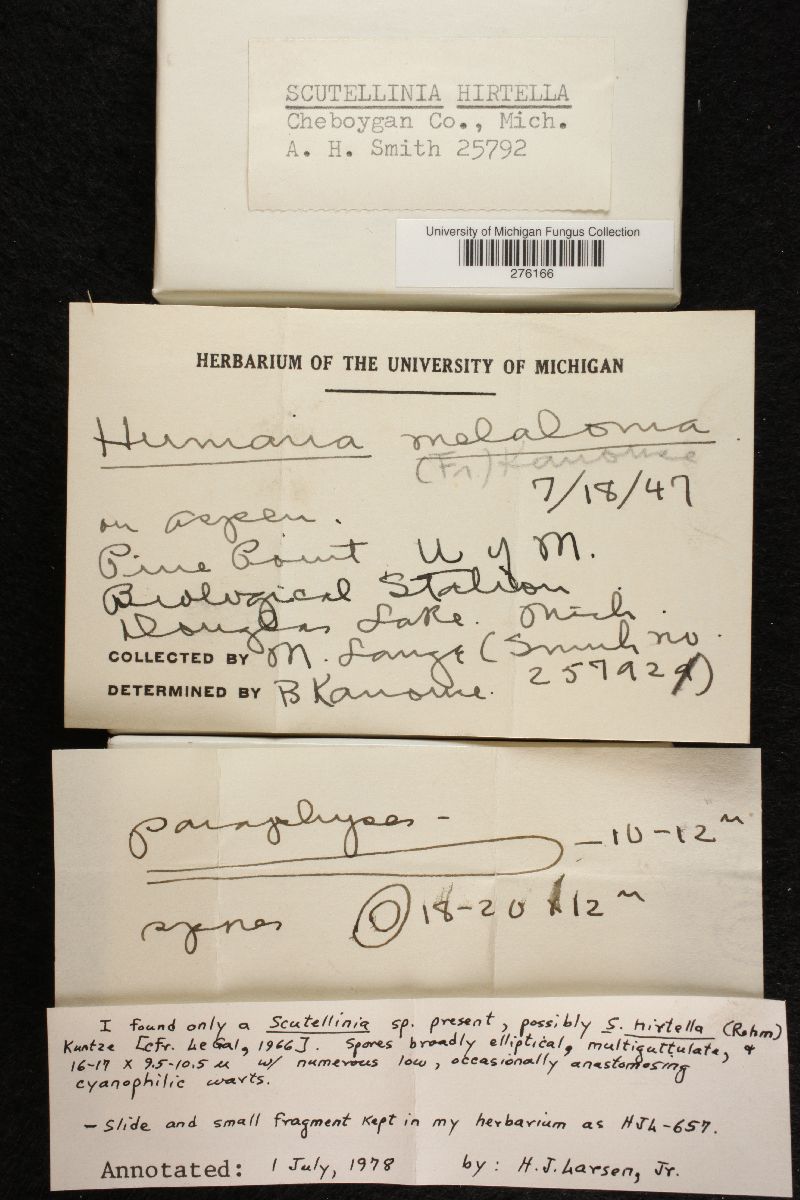 SCUTELLINIA HIRTELLA
Cheboygan Co., Mich.
A. H. Smith 25792
University of Michigan Fungus Collection
276166
HERBARIUM OF THE UNIVERSITY OF MICHIGAN
Humaria melaloma
(Fr.) Kanouse
7/18/47
on aspen.
Pine Point U of M.
Biological Station
Douglas Lake. Mich.
COLLECTED BY M. Lange (Smith no.
DETERMINED BY B Kanouse. 25792)
paraphyses -
- 10-12 u
spores 18-20 x 12 u
I found only a Scutellinia sp. present, possibly S. hirtella (Rehm)
Kuntze [cfr. Le Gal, 1966]. Spores broadly elliptical, multiguttulate, &
16-17 x 9.5-10.5 u w/ numerous low, occasionally anastomosing
cyanophilic warts.
- Slide and small fragment kept in my herbarium as HJL-657.
Annotated: 1 July, 1978 by: H.J. Larsen, Jr.